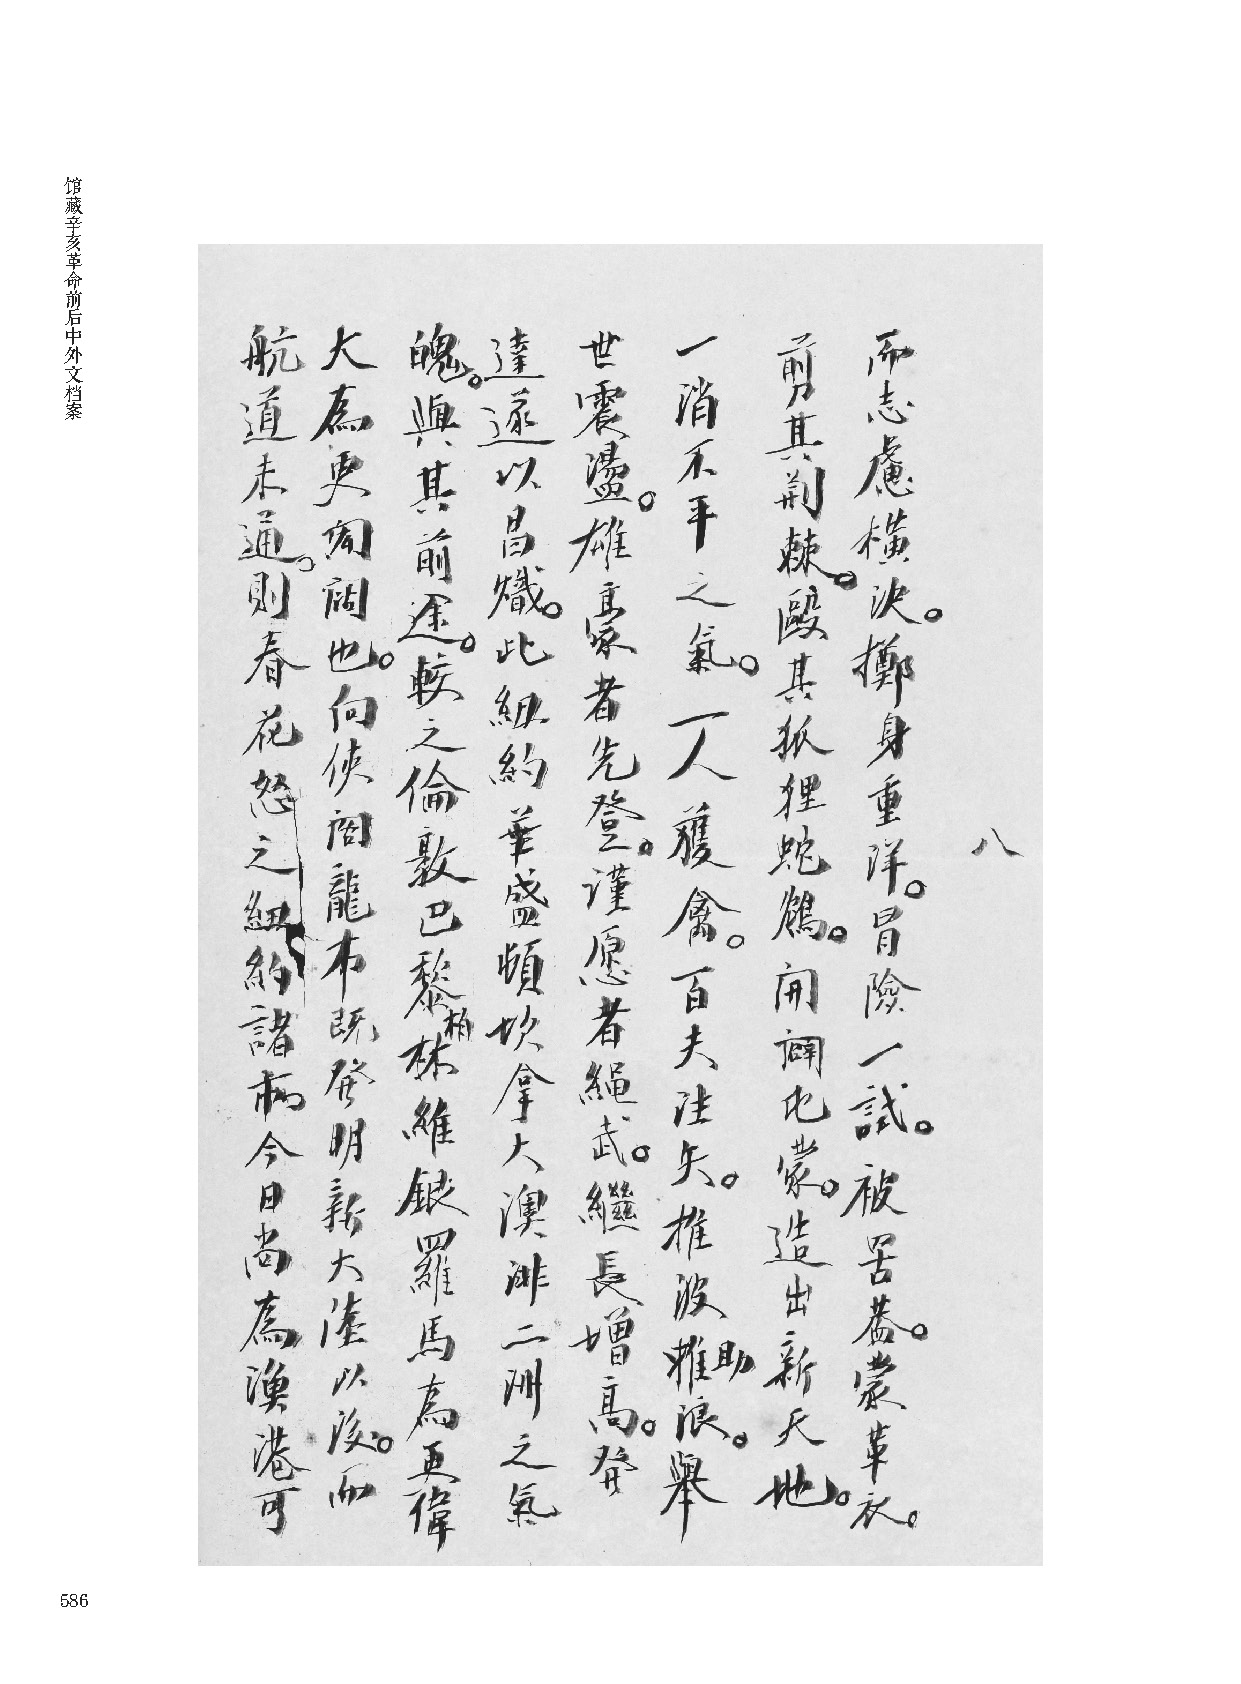 八
而志慮橫決。擲身重洋。冒險一試。被罟蓋。蒙革衣。
剪其荆棘。毆其狐狸蛇鵂。開闢屯蒙。造出新天地。
一消不平之氣。一人獲禽。百夫注矢。推波助浪。舉
世震盪。雄豪者先登。謹愿者繩武。繼長增高。發
達遂以昌熾。此紐約華盛頓坎拿大澳非二洲之氣
魄。與其前途。較之倫敦巴黎柏林維銀羅馬為更偉
大為更闊也。向使閣龍布既發明新大陸以後。而
航道未通。則春花怒之紐約諸市今日尚為漁港可
馆藏辛亥革命前后中外文档案
586